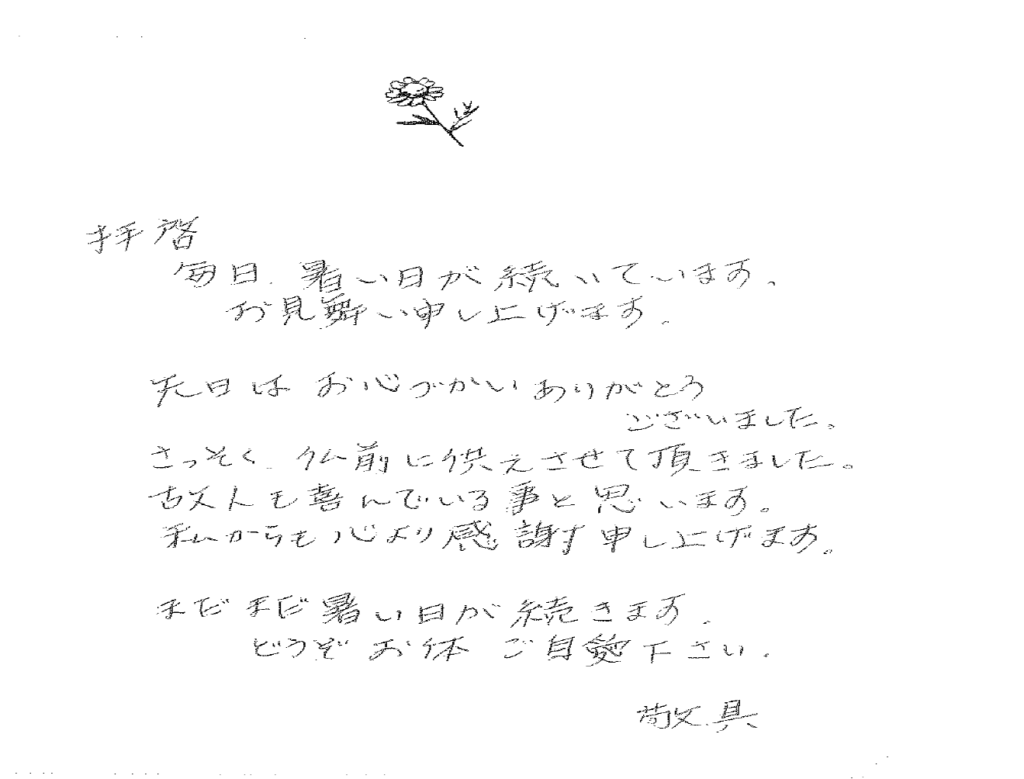 拝啓
毎日、暑い日が続いています。
お見舞い申し上げます。
先日は お心づかい ありがとう
ございました。
さっそく、仏前に供えさせて頂きました。
故人も喜んでいる事と思います。
私からも心より感謝申し上げます。
まだまだ暑い日が続きます。
どうぞ お体 ご自愛下さい。
敬具